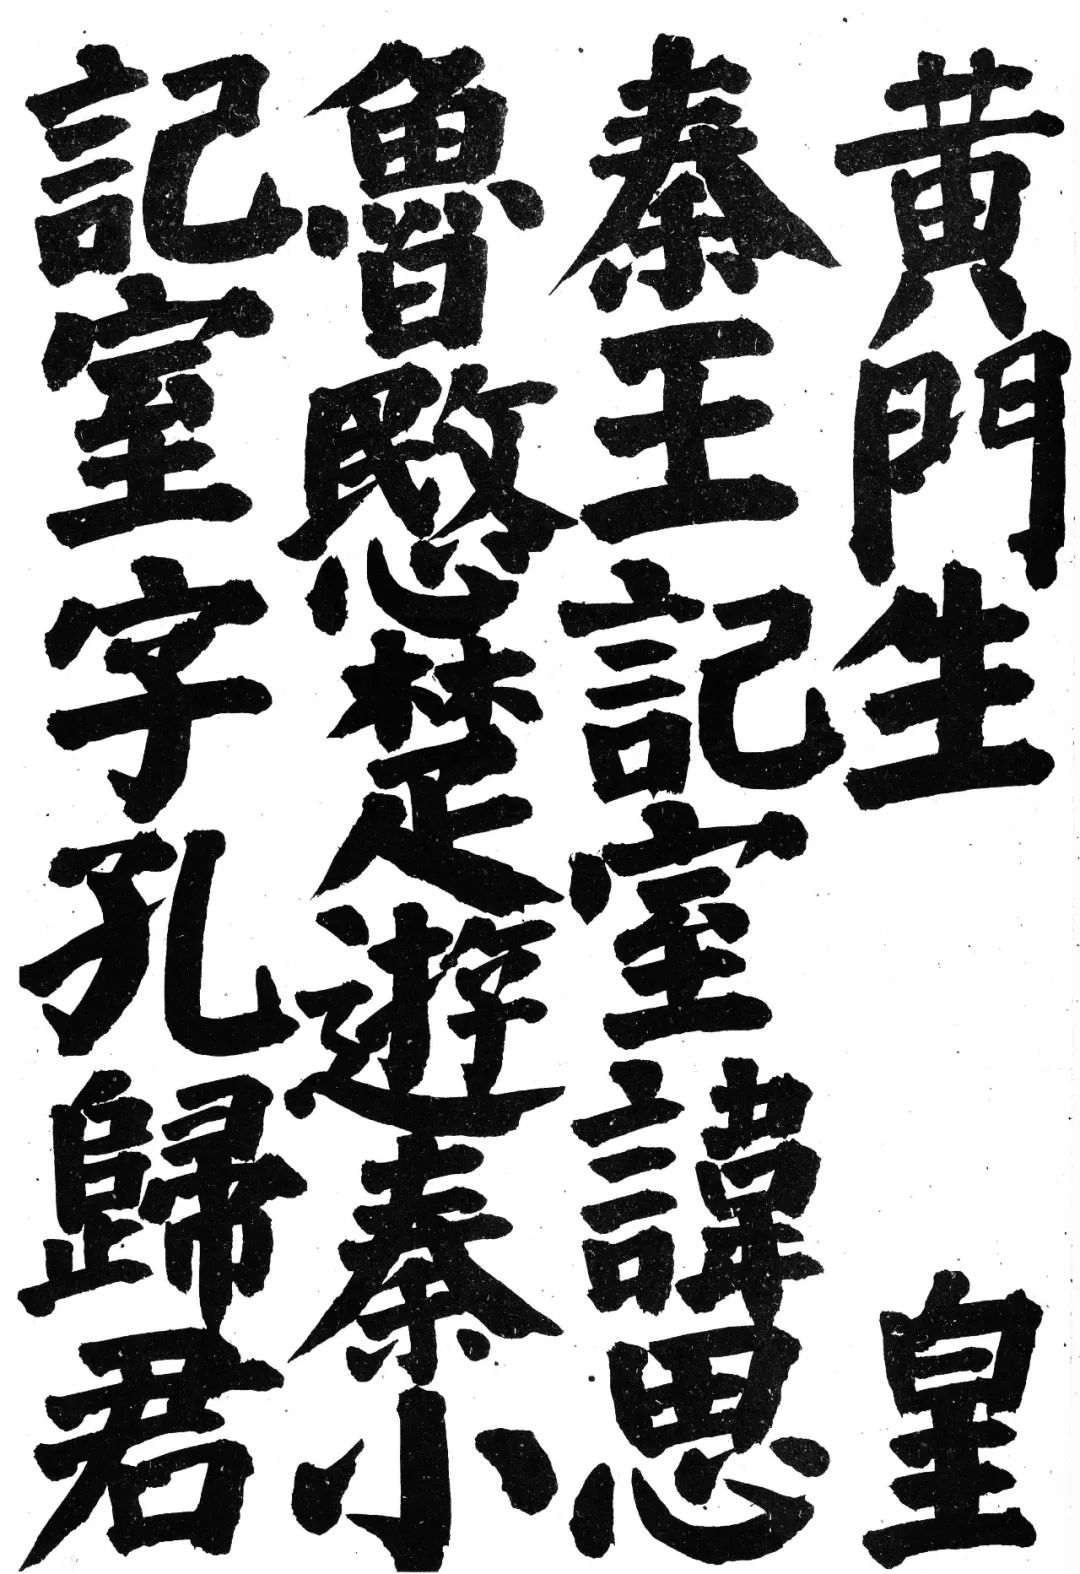 黄門生皇
秦王記室諱思
魯愍楚遊秦小
記室字孔歸君